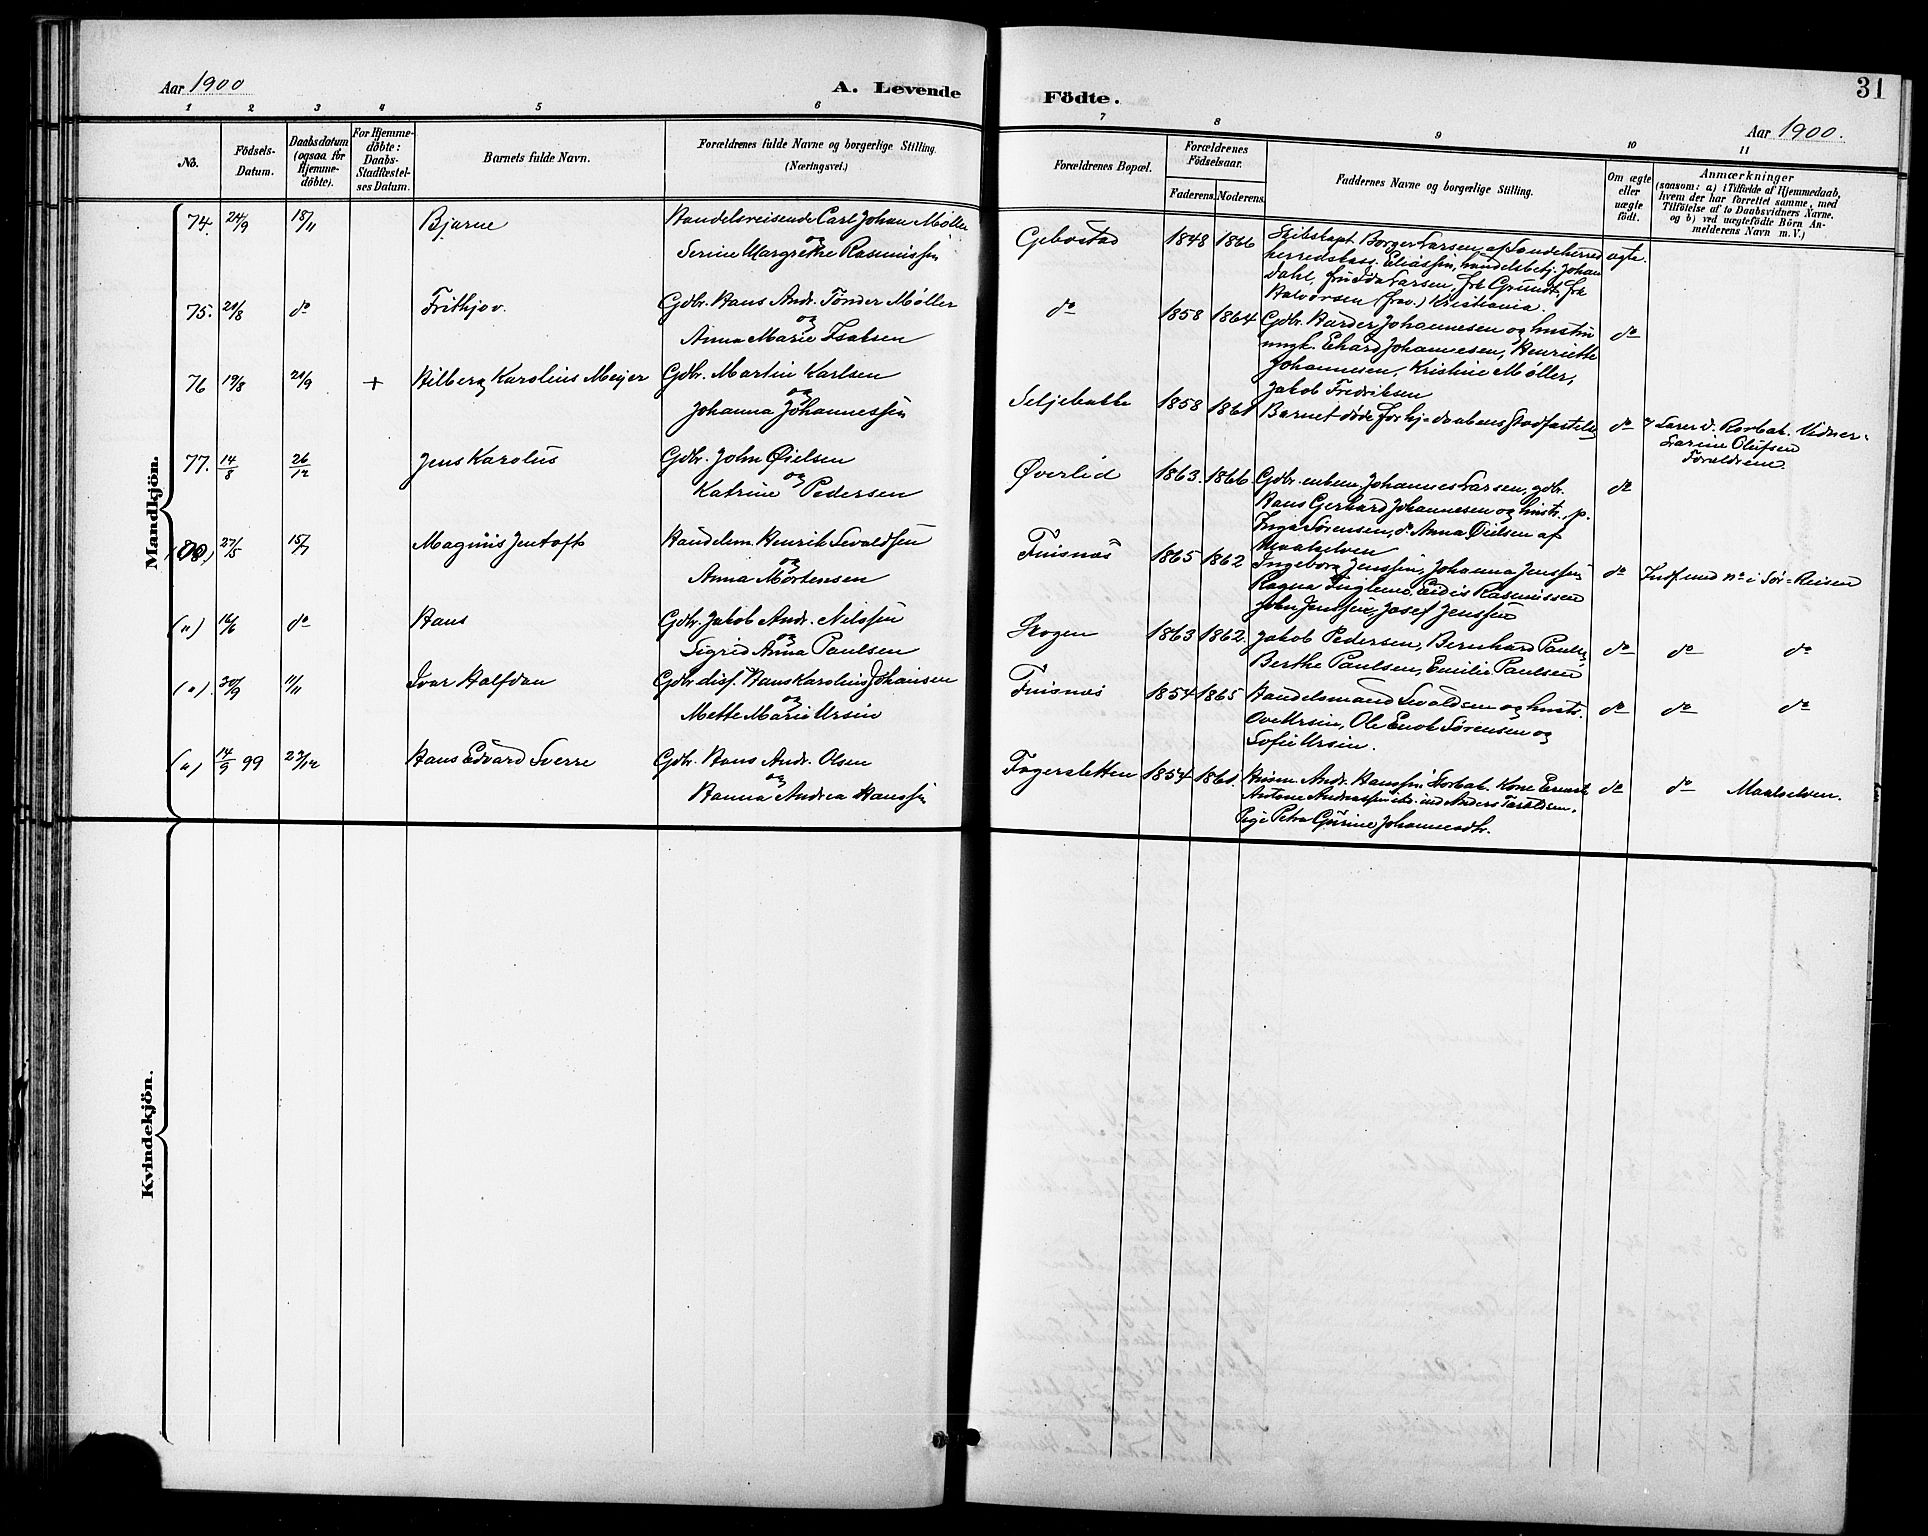 Aar 1900
A. Levende
Födte.
31
Aar 1900.
1 2 3 4 5 6
7 8 9 10 11
No.
Födsels-
Datum.
Daabsdatum
(ogsaa for
Hjemme-
döbte).
For Hjemme-
döbte:
Daabs-
Stadfæstel-
ses Datum.
Barnets fulde Navn.
Forældrenes fulde Navne og borgerlige Stilling.
(Næringsvei.)
Forældrenes Bopæl.
Forældrenes
Födselsaar.
Faderens. Moderens.
Faddernes Navne og borgerlige Stilling.
Om ægte
eller
uægte
födt.
Anmærkninger
(saasom: a) i Tilfælde af Hjemmedaab,
hvem der har forrettet samme, med
Tilföielse af to Daabsvidners Navne.
og b) ved uægtefödte Börn An-
melderens Navn m. V.)
Mandkjön.
74. 24/9 18/11 Bjarne Handelsreisende Carl Johan Møller
og
Serine Margrethe Rasmussen
Gebostad 1848 1866 Skibskapt. Borger Larsen af Sandeherred ægte.
herredskass. Eliassen, handelsbetj. Johan
Dahl, fru Larsen, frk Grundt, frk
Halvorsen (frav.) Kristiania.
75. 21/8 do Frithjov. Gdbr. Hans Andr. Tønder Møller
og
Anna Marie Isaksen
do 1858 1864 Gdbr. Harder Johannesen og hustru do
ungk. Ehard Johannesen, Henriette
Johannesen, Kristine Møller,
Jakob Fredriksen
76 19/8 21/9 + Hilberg Karolius Meijer Gdbr. Martin Karlsen
og
Johanna Johannessen
Seljebakke 1858 1861 Barnet døde før hj-daabens Stadfæstelse do Lærer Vidner:
Larine Olufsen
Forældrene
77. 14/8 26/12 Jens Karolus Gdbr. John Øielsen
og
Katrine Pedersen
Øverlid 1863. 1866 Gdbr. enkem. Johannes Larsen, gdbr. do
Hans Gerhard Johannesen og hustr., p.
Inga Sørensen, do Anna Øielsen af
Maalselven
27/5 15/7 Magnus Jentoft Handelsm. Henrik Sivaldsen
og
Anna Mortensen
Finsnæs 1865 1862 Ingeborg Jenssen, Johanna Jenssen do Indf. und no i Sør-Reisen
Ragna Rasmussen
John Jenssen, Josef Jenssen
(") 16/6 do Hans Gdbr. Jakob Andr. Nilssen
og
Sigrid Anna Paulsen
Skogen 1863 1862. Jakob Pedersen, Bernhard Paulsen, do do do
Berthe Paulsen, Emilie Paulsen
("). 30/9 11/11 Ivar Halfdan Gdbr. diss. Hans Karolius Johansen
og
Mette Marie Ursin
Finsnæs 1854 1865 Handelsmand Sivaldsen og hustr. do do do
Ove Ursin, Ole Enok Sørensen og
Sofie Ursin.
(") 14/9 99 27/12 Hans Edvard Sverre Gdbr. Hans Andr. Olsen
og
Hanna Andrea Hanssen
Fagersletten 1854 1861. Husm. Andr. Hanssen Storbak. Kone do do Maalselven.
Antone Anders Taraldsen.
Pige Petra Gurine Johannesdtr.
Kvindekjön.